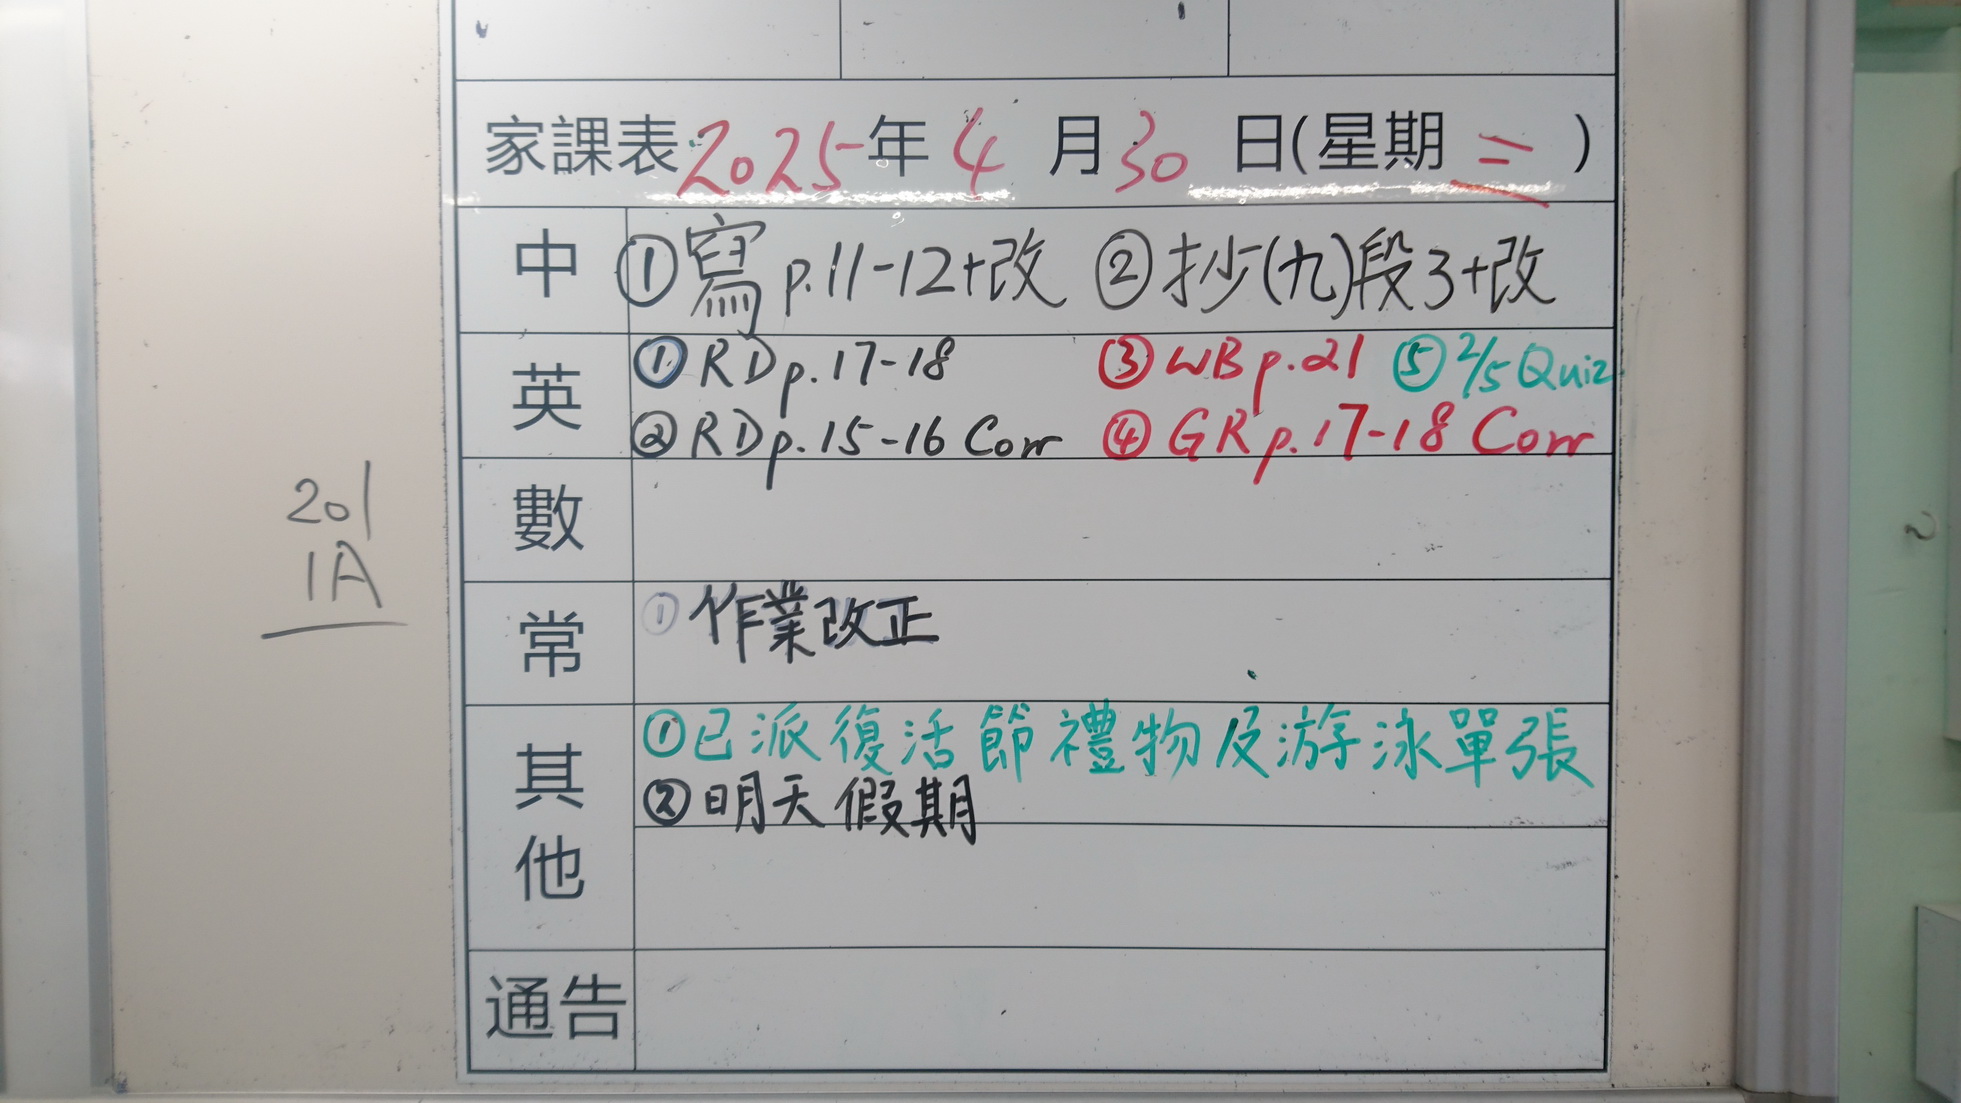 家課表 2025年 4 月 30 日(星期 三 )
中 ①寫p.11-12+改 ②抄(九)段3+改
英 ①RD p.17-18 ③WB p.21 ⑤2/5 Quiz
②RD p.15-16 Corr ④GR p.17-18 Corr
數
常 ①作業改正
其他 ①已派復活節禮物及游泳單張
②明天假期
通告
201
1A